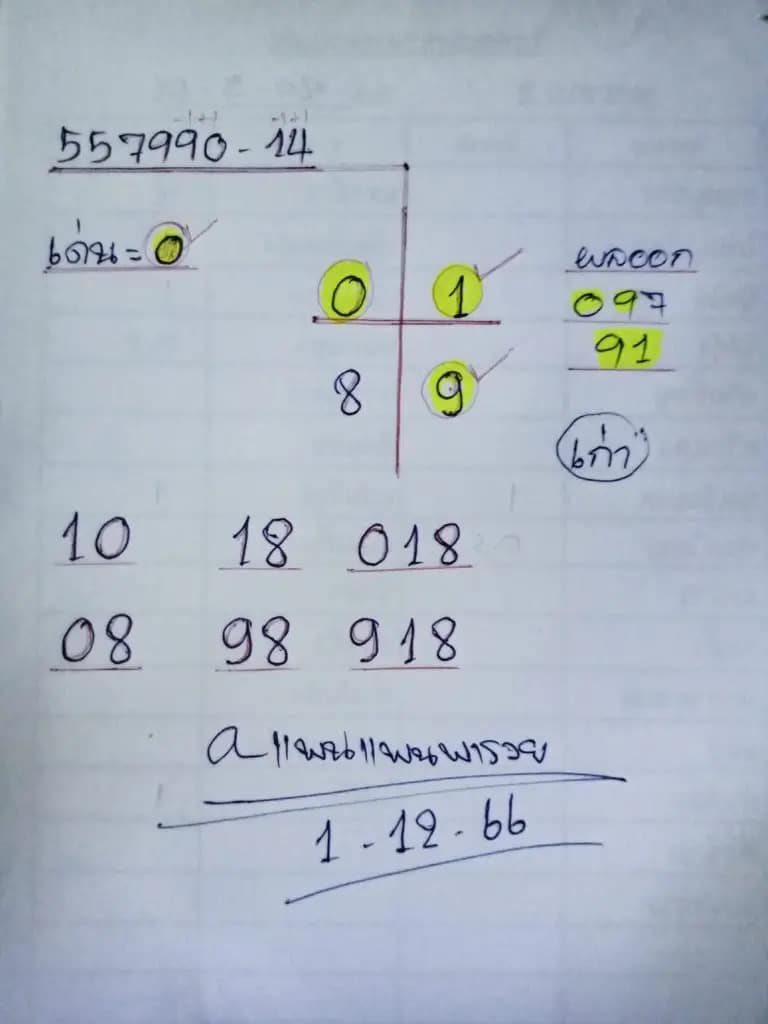 557990-14
เด่น=0
0 1
8 9
ผลออก
097
91
เก่า
10 18 018
08 98 918
a แพนแพนพารวย
1-12-66